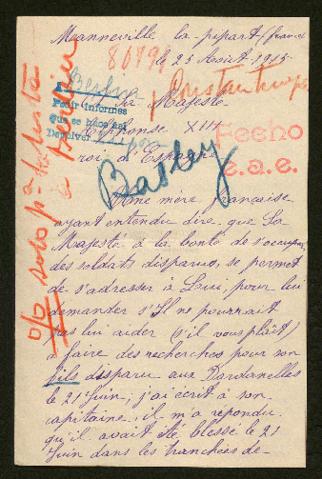 Manneville la pipart (france
80494
le 25 Août 1915
Berlin
Constantinople
Pedir informes
que se hace así
Devolver
Sa Majesté
Alphonse XIII
roi d'Espagne
Fecho
e.a.e.
Basley
Une mère française
ayant entendu dire que Sa
Majesté à la bonté de s'occuper
des soldats disparus, se permet
de s'adresser à Lui, pour lui
demander s'Il ne pourrait
pas lui aider (s'il vous plaît)
à faire des recherches pour son
fils disparu aux Dardanelles
le 21 Juin; j'ai écrit à son
capitaine il m'a répondu
qu'il avait été blessé le 21
Juin dans les tranchées de-